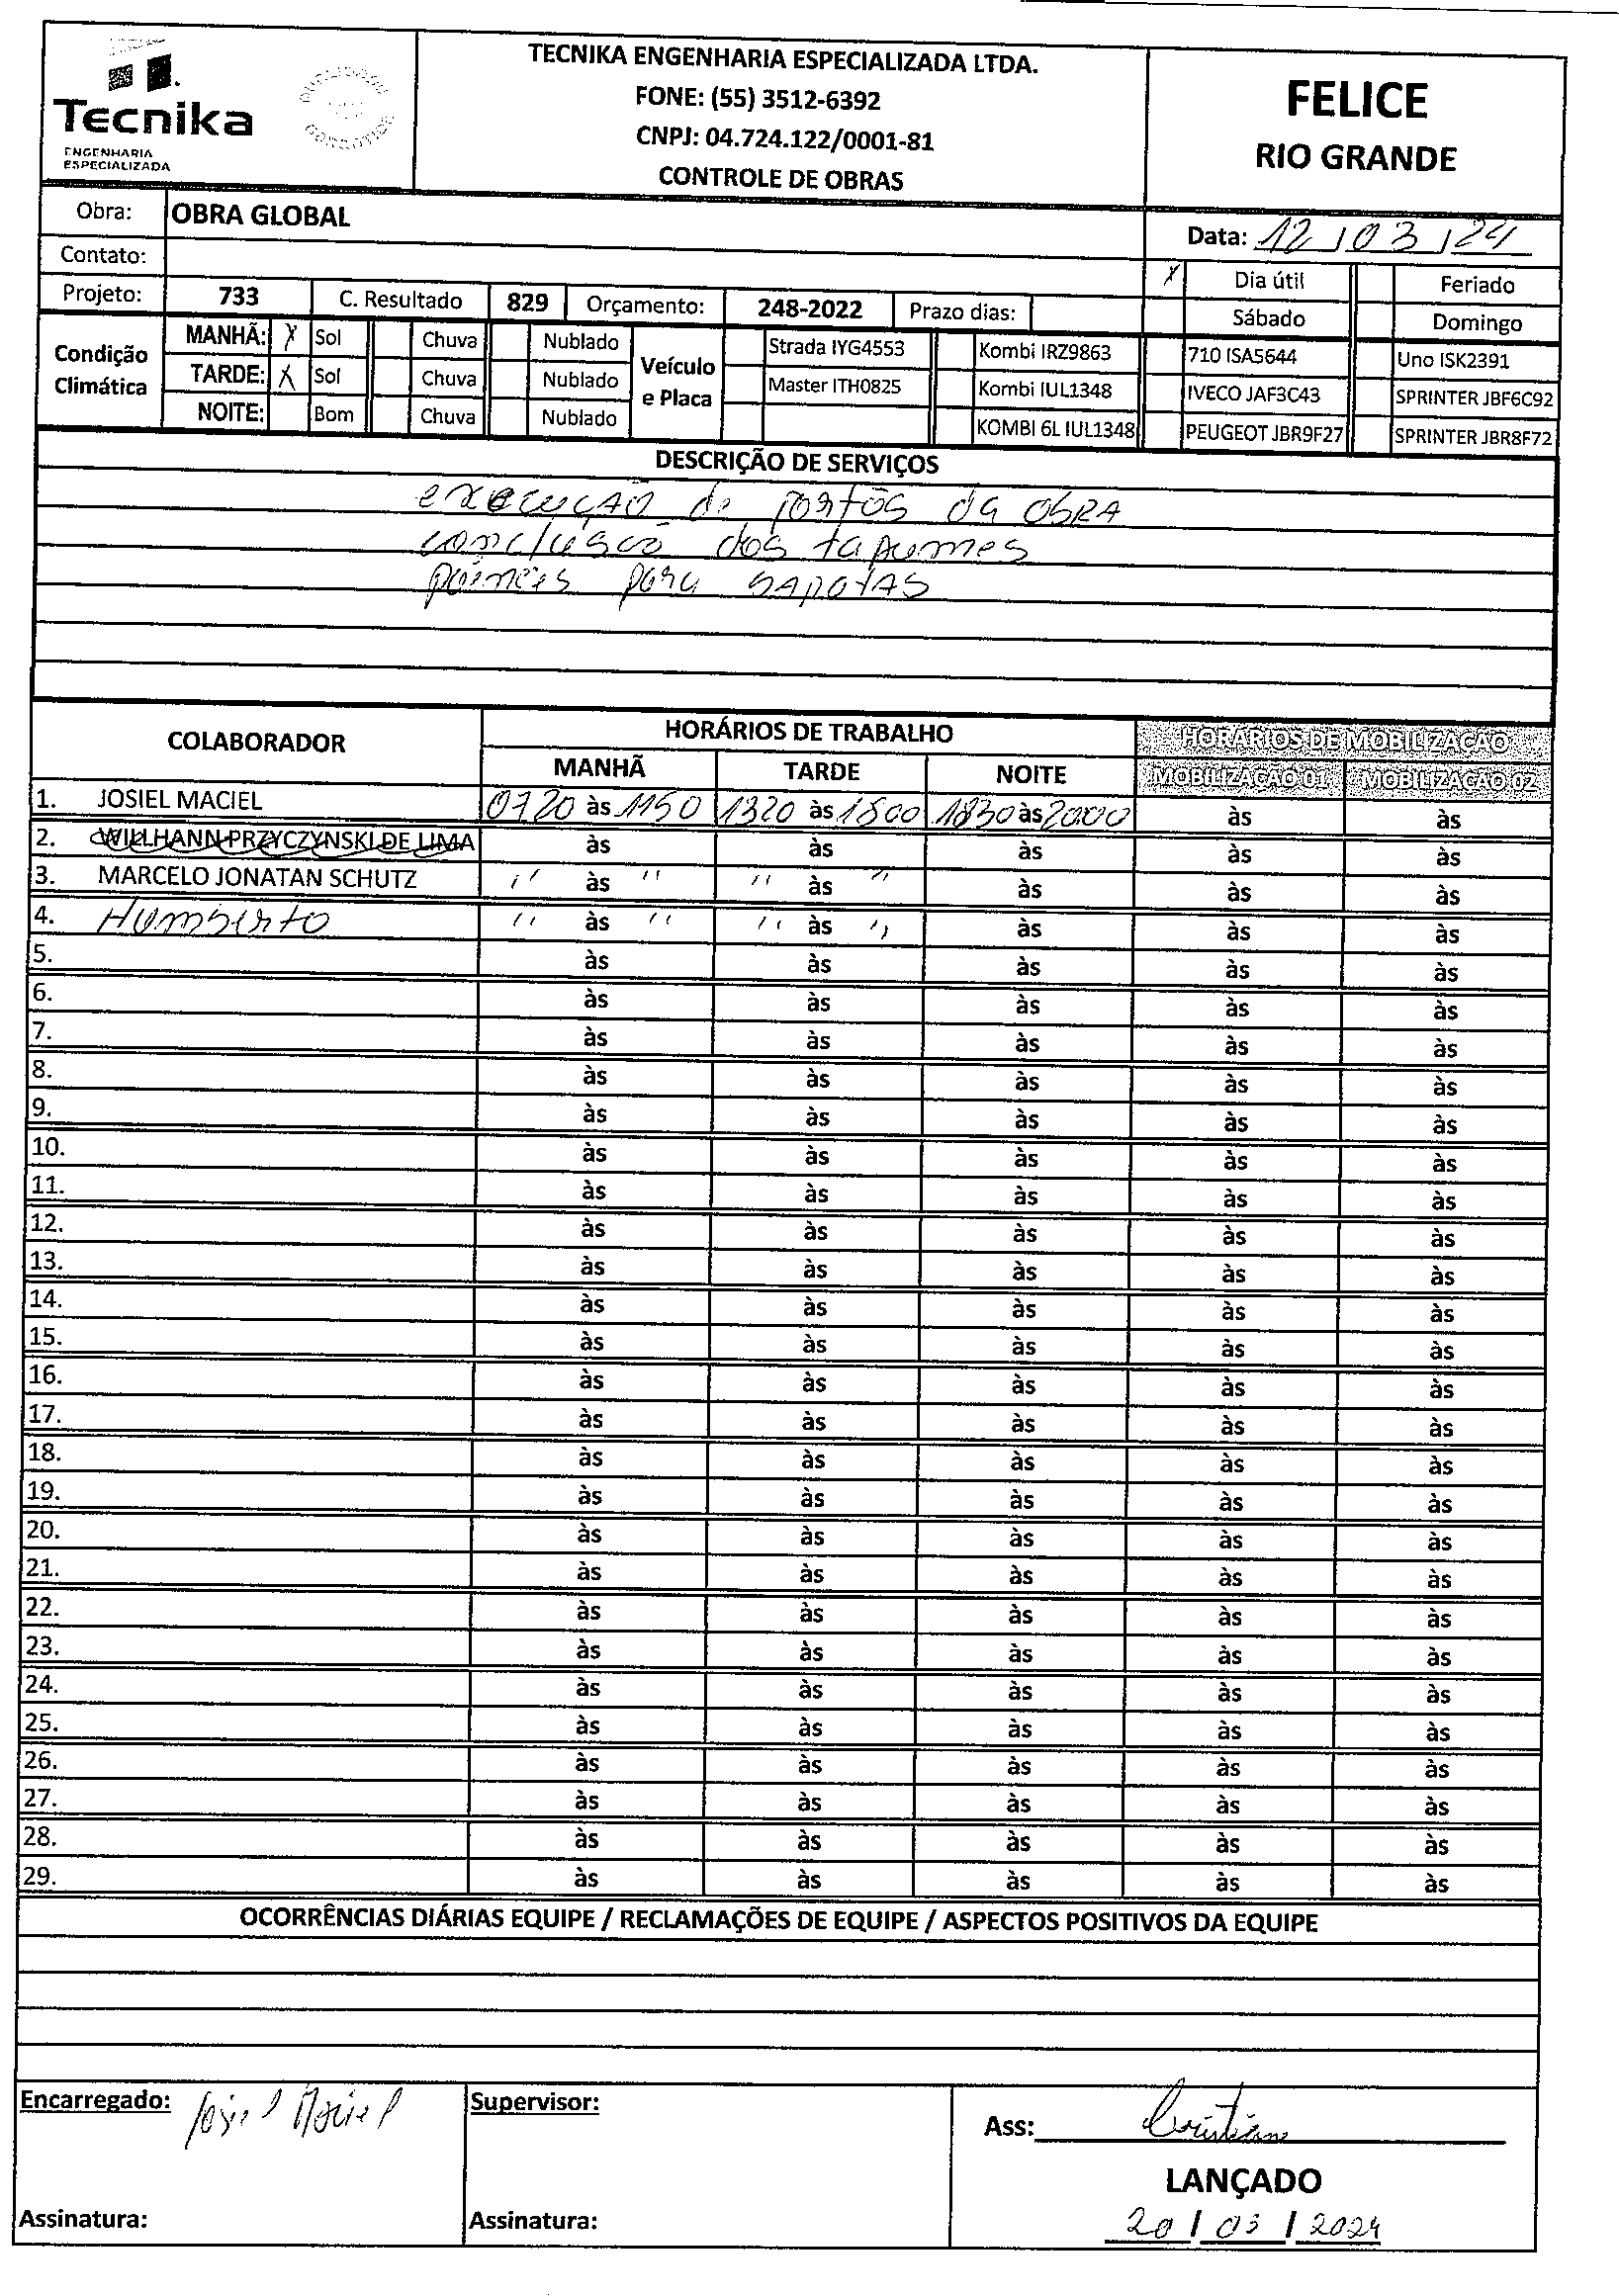 Tecnika
ENGENHARIA
ESPECIALIZADA
TECNIKA ENGENHARIA ESPECIALIZADA LTDA.
FONE: (55) 3512-6392
CNPJ: 04.724.122/0001-81
CONTROLE DE OBRAS
FELICE
RIO GRANDE
Obra: OBRA GLOBAL
Data: 12/03/24
Contato:
X Dia útil Feriado
Projeto: 733 C. Resultado 829 Orçamento: 248-2022 Prazo dias:
Sábado Domingo
Condição Climática
MANHÃ: X Sol Chuva Nublado
TARDE: X Sol Chuva Nublado
NOITE: Bom Chuva Nublado
Veículo e Placa
Strada IYG4553 Kombi IRZ9863 710 ISA5644 Uno ISK2391
Master ITH0825 Kombi IUL1348 IVECO JAF3C43 SPRINTER JBF6C92
KOMBI 6L IUL1348 PEUGEOT JBR9F27 SPRINTER JBR8F72
DESCRIÇÃO DE SERVIÇOS
execução de portõs da OBRA
conclusão dos tapumes
para SAPOTAS
COLABORADOR HORÁRIOS DE TRABALHO HORÁRIOS DE MOBILIZAÇÃO
MANHÃ TARDE NOITE MOBILIZAÇÃO 01 MOBILIZAÇÃO 02
1. JOSIEL MACIEL 0720 às 1150 1320 às 1800 1830 às 2000 às às
2. WILLHANN PRZYCZYNSKI DE LIMA às às às às às
3. MARCELO JONATAN SCHUTZ '' às '' '' às '' às às às
4. Humberto '' às '' '' às '' às às às
5. às às às às às
6. às às às às às
7. às às às às às
8. às às às às às
9. às às às às às
10. às às às às às
11. às às às às às
12. às às às às às
13. às às às às às
14. às às às às às
15. às às às às às
16. às às às às às
17. às às às às às
18. às às às às às
19. às às às às às
20. às às às às às
21. às às às às às
22. às às às às às
23. às às às às às
24. às às às às às
25. às às às às às
26. às às às às às
27. às às às às às
28. às às às às às
29. às às às às às
OCORRÊNCIAS DIÁRIAS EQUIPE / RECLAMAÇÕES DE EQUIPE / ASPECTOS POSITIVOS DA EQUIPE
Encarregado: Josiel Maciel
Supervisor:
Ass: Cristiane
LANÇADO
Assinatura:
Assinatura:
20 / 03 / 2024